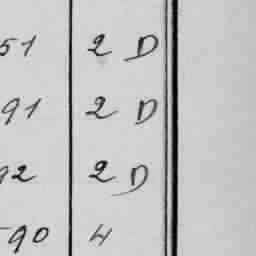 51 2 D
91 2 D
92 2 D
90 4